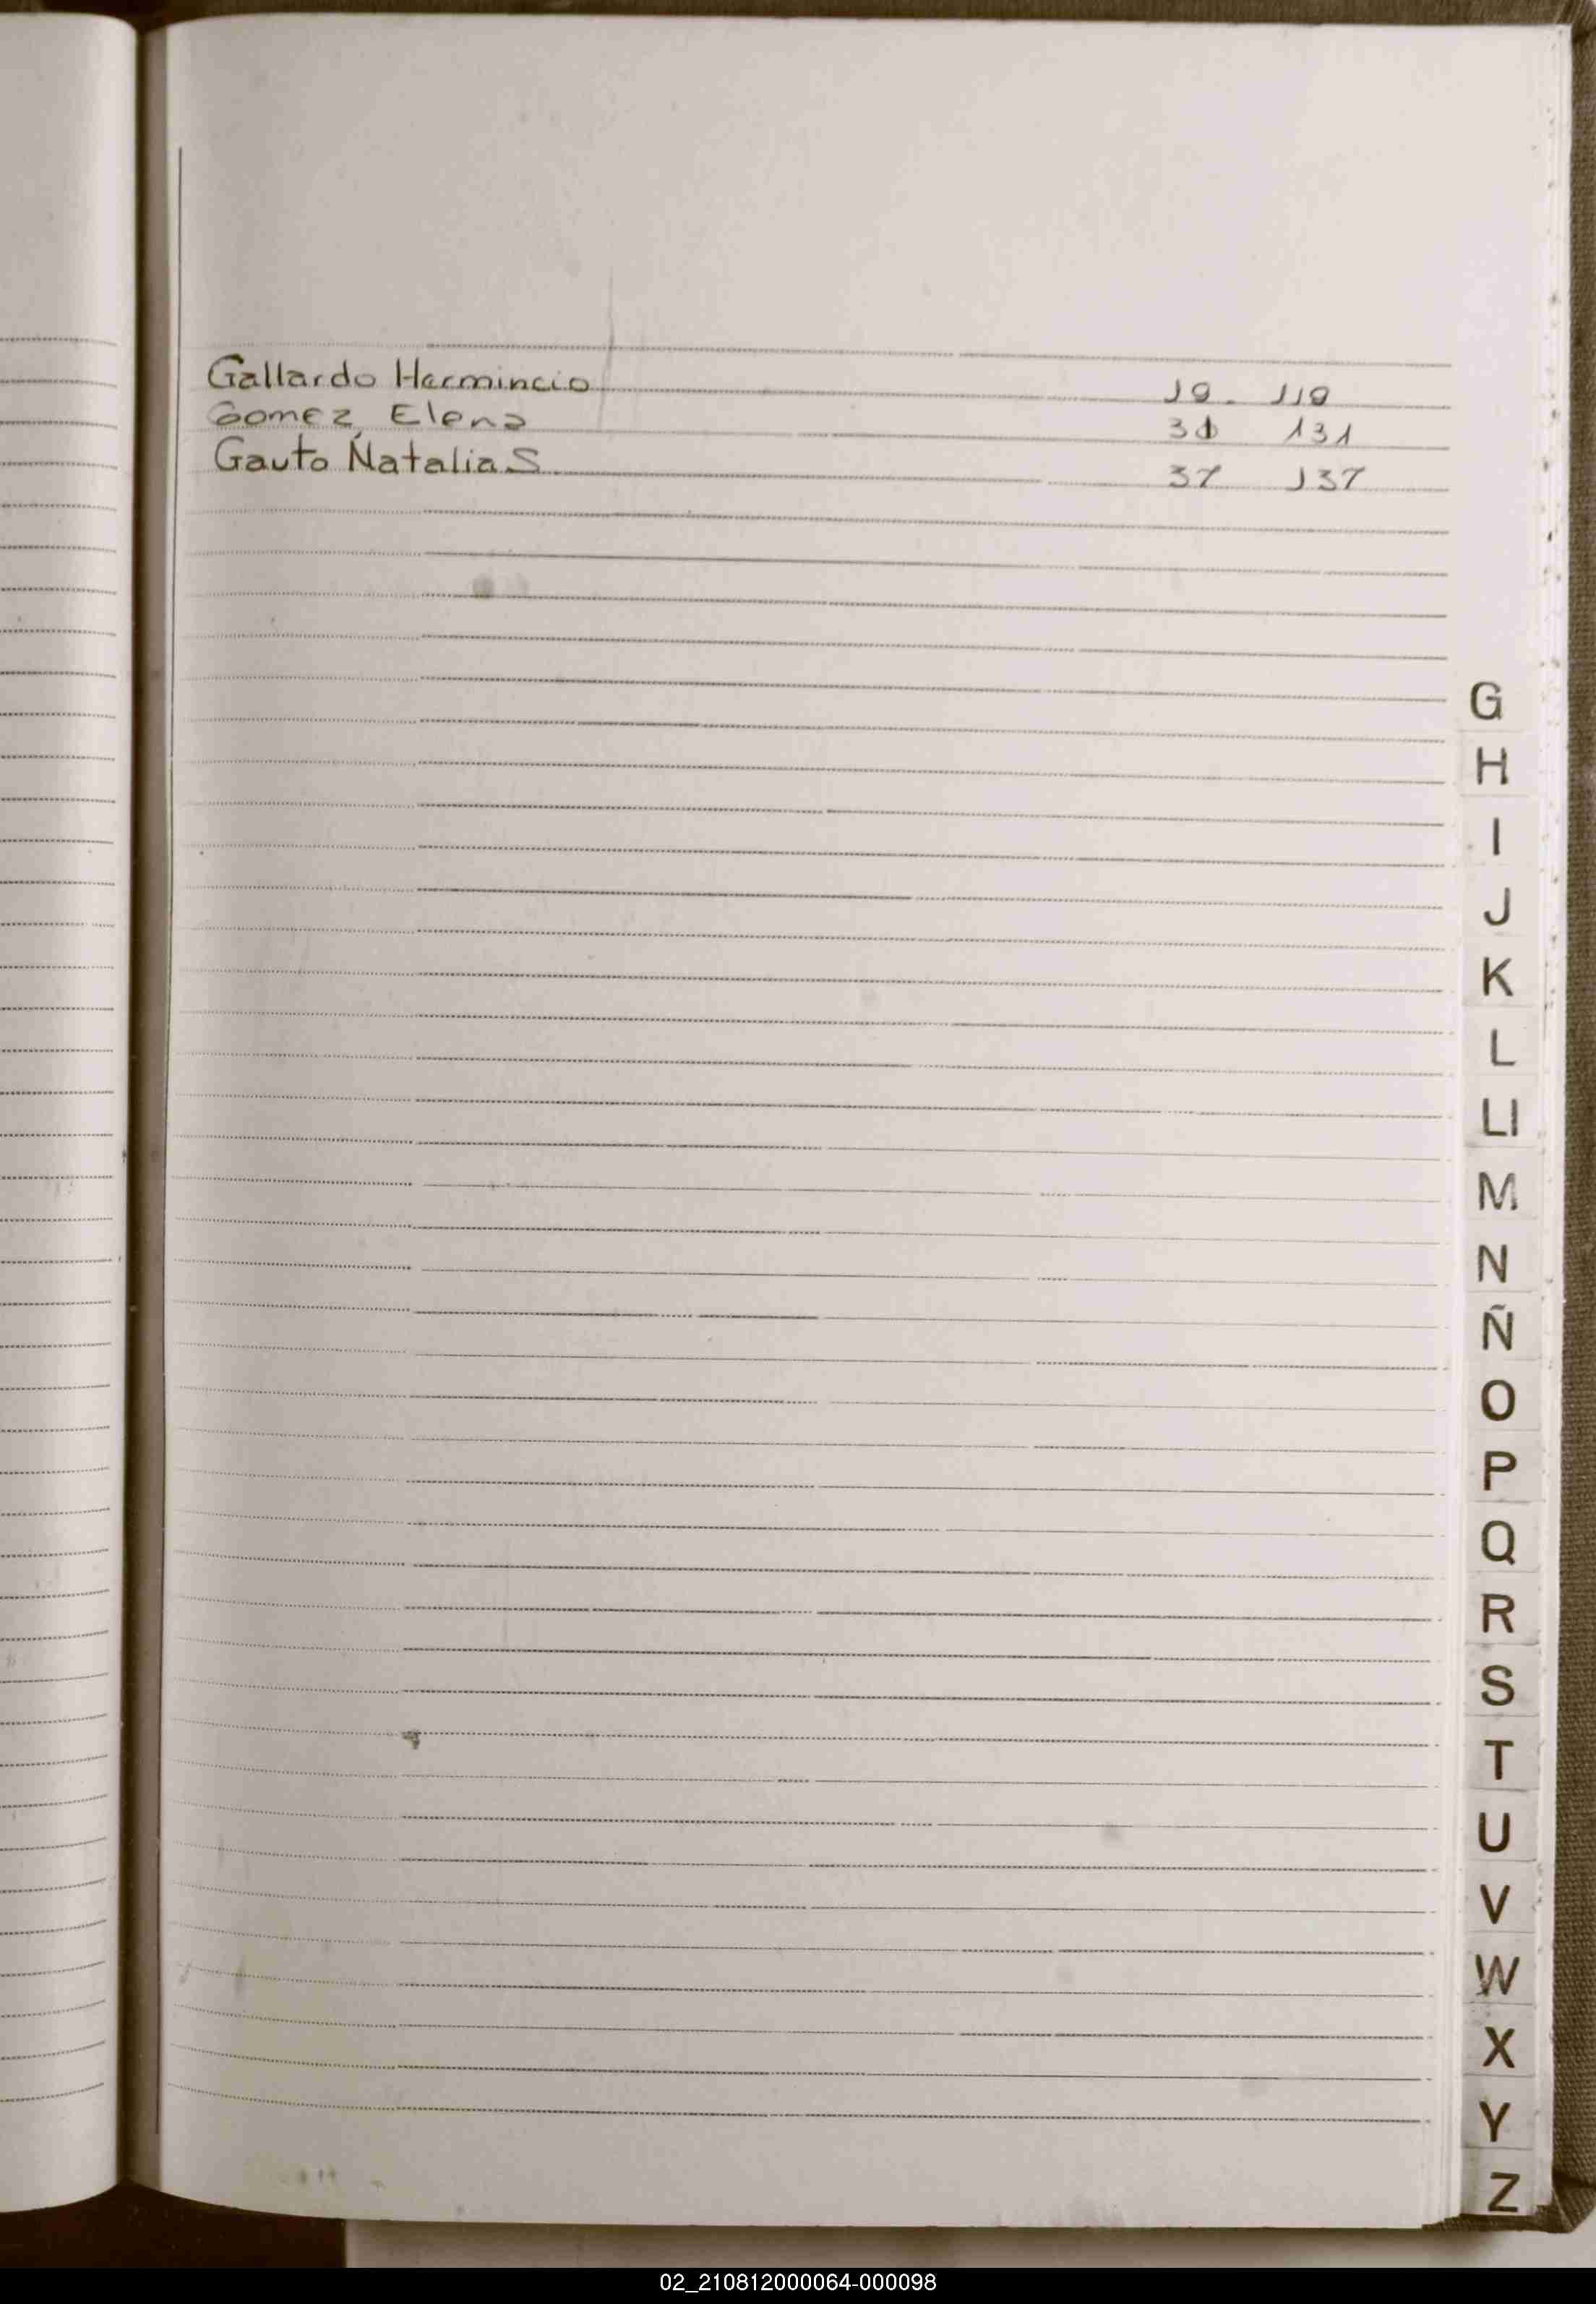 Gallardo Hermincio 19. 119
Gomez, Elena 31 131
Gauto Natalia S. 37 137
G
H
I
J
K
L
Ll
M
N
Ñ
O
P
Q
R
S
T
U
V
W
X
Y
Z
02_210812000064-000098